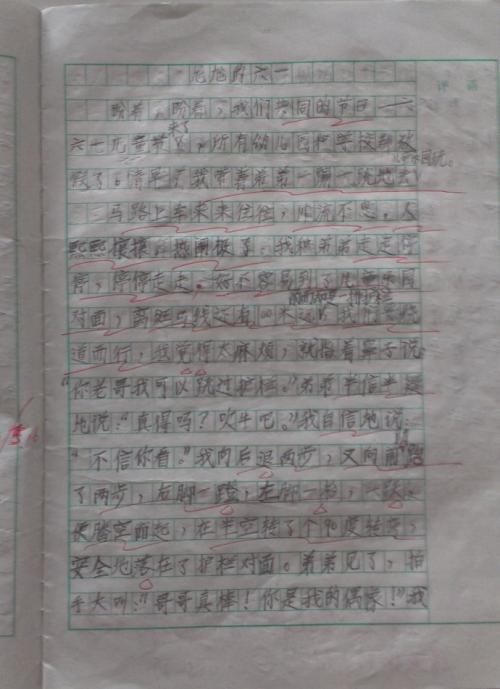 六一
盼着,盼着,我们共同的节日——六
六一儿童节来了,所有的儿园和学校都放
假了。清早,我带着弟弟一蹦一跳地去
儿童乐园玩。
马路上车来来往往,川流不息。人
熙熙攘攘,热闹极了。我和弟弟走走停
停,停停走走。好不容易到了儿童乐园
对面,离斑马线还有100米远
道而行,我觉得太麻烦,就指着鼻子说
“你老哥我可以跳过护栏。”弟弟半信半疑
地说:“真得吗?吹牛吧。”我自信地说:
“不信你看。”我向后退两步,又向前跑
了两步,右脚一蹬,左脚一抬,一跃
便腾空而起,在半空转了个90度转弯,
安全地落在了护栏对面。弟弟见了,拍
手大叫:“哥哥真棒!你是我的偶像!”我